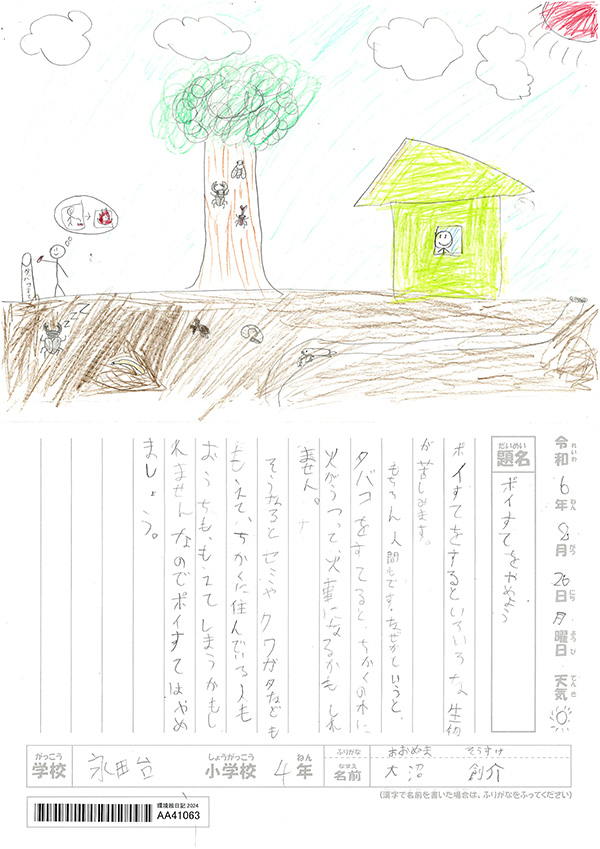 タバコ
z z Z
令和6年8月26日月曜日 天気
れいわ ねん がつ にち よう び てん き
だいめい
題名
ポイすてをやめよう
ポイすてをするといろいろな生物
が苦しみます。
もちろん人間もです。なぜかというと、
タバコをすてると、ちかくの木に
火がうつって、火事になるかもしれ
ません。
そうなるとセミやクワガタなども
もえて、ちかくに住んでいる人も
おうちも、もえてしまうかもし
れませんなのでポイすてはやめ
ましょう。
がっこう
学校
永田台
しょうがっこう
小学校
4
ねん
年
ふりがな
おおぬま そうすけ
なまえ
名前
大沼 創介
(漢字で名前を書いた場合は、ふりがなをふってください)
環境絵日記2024
AA41063